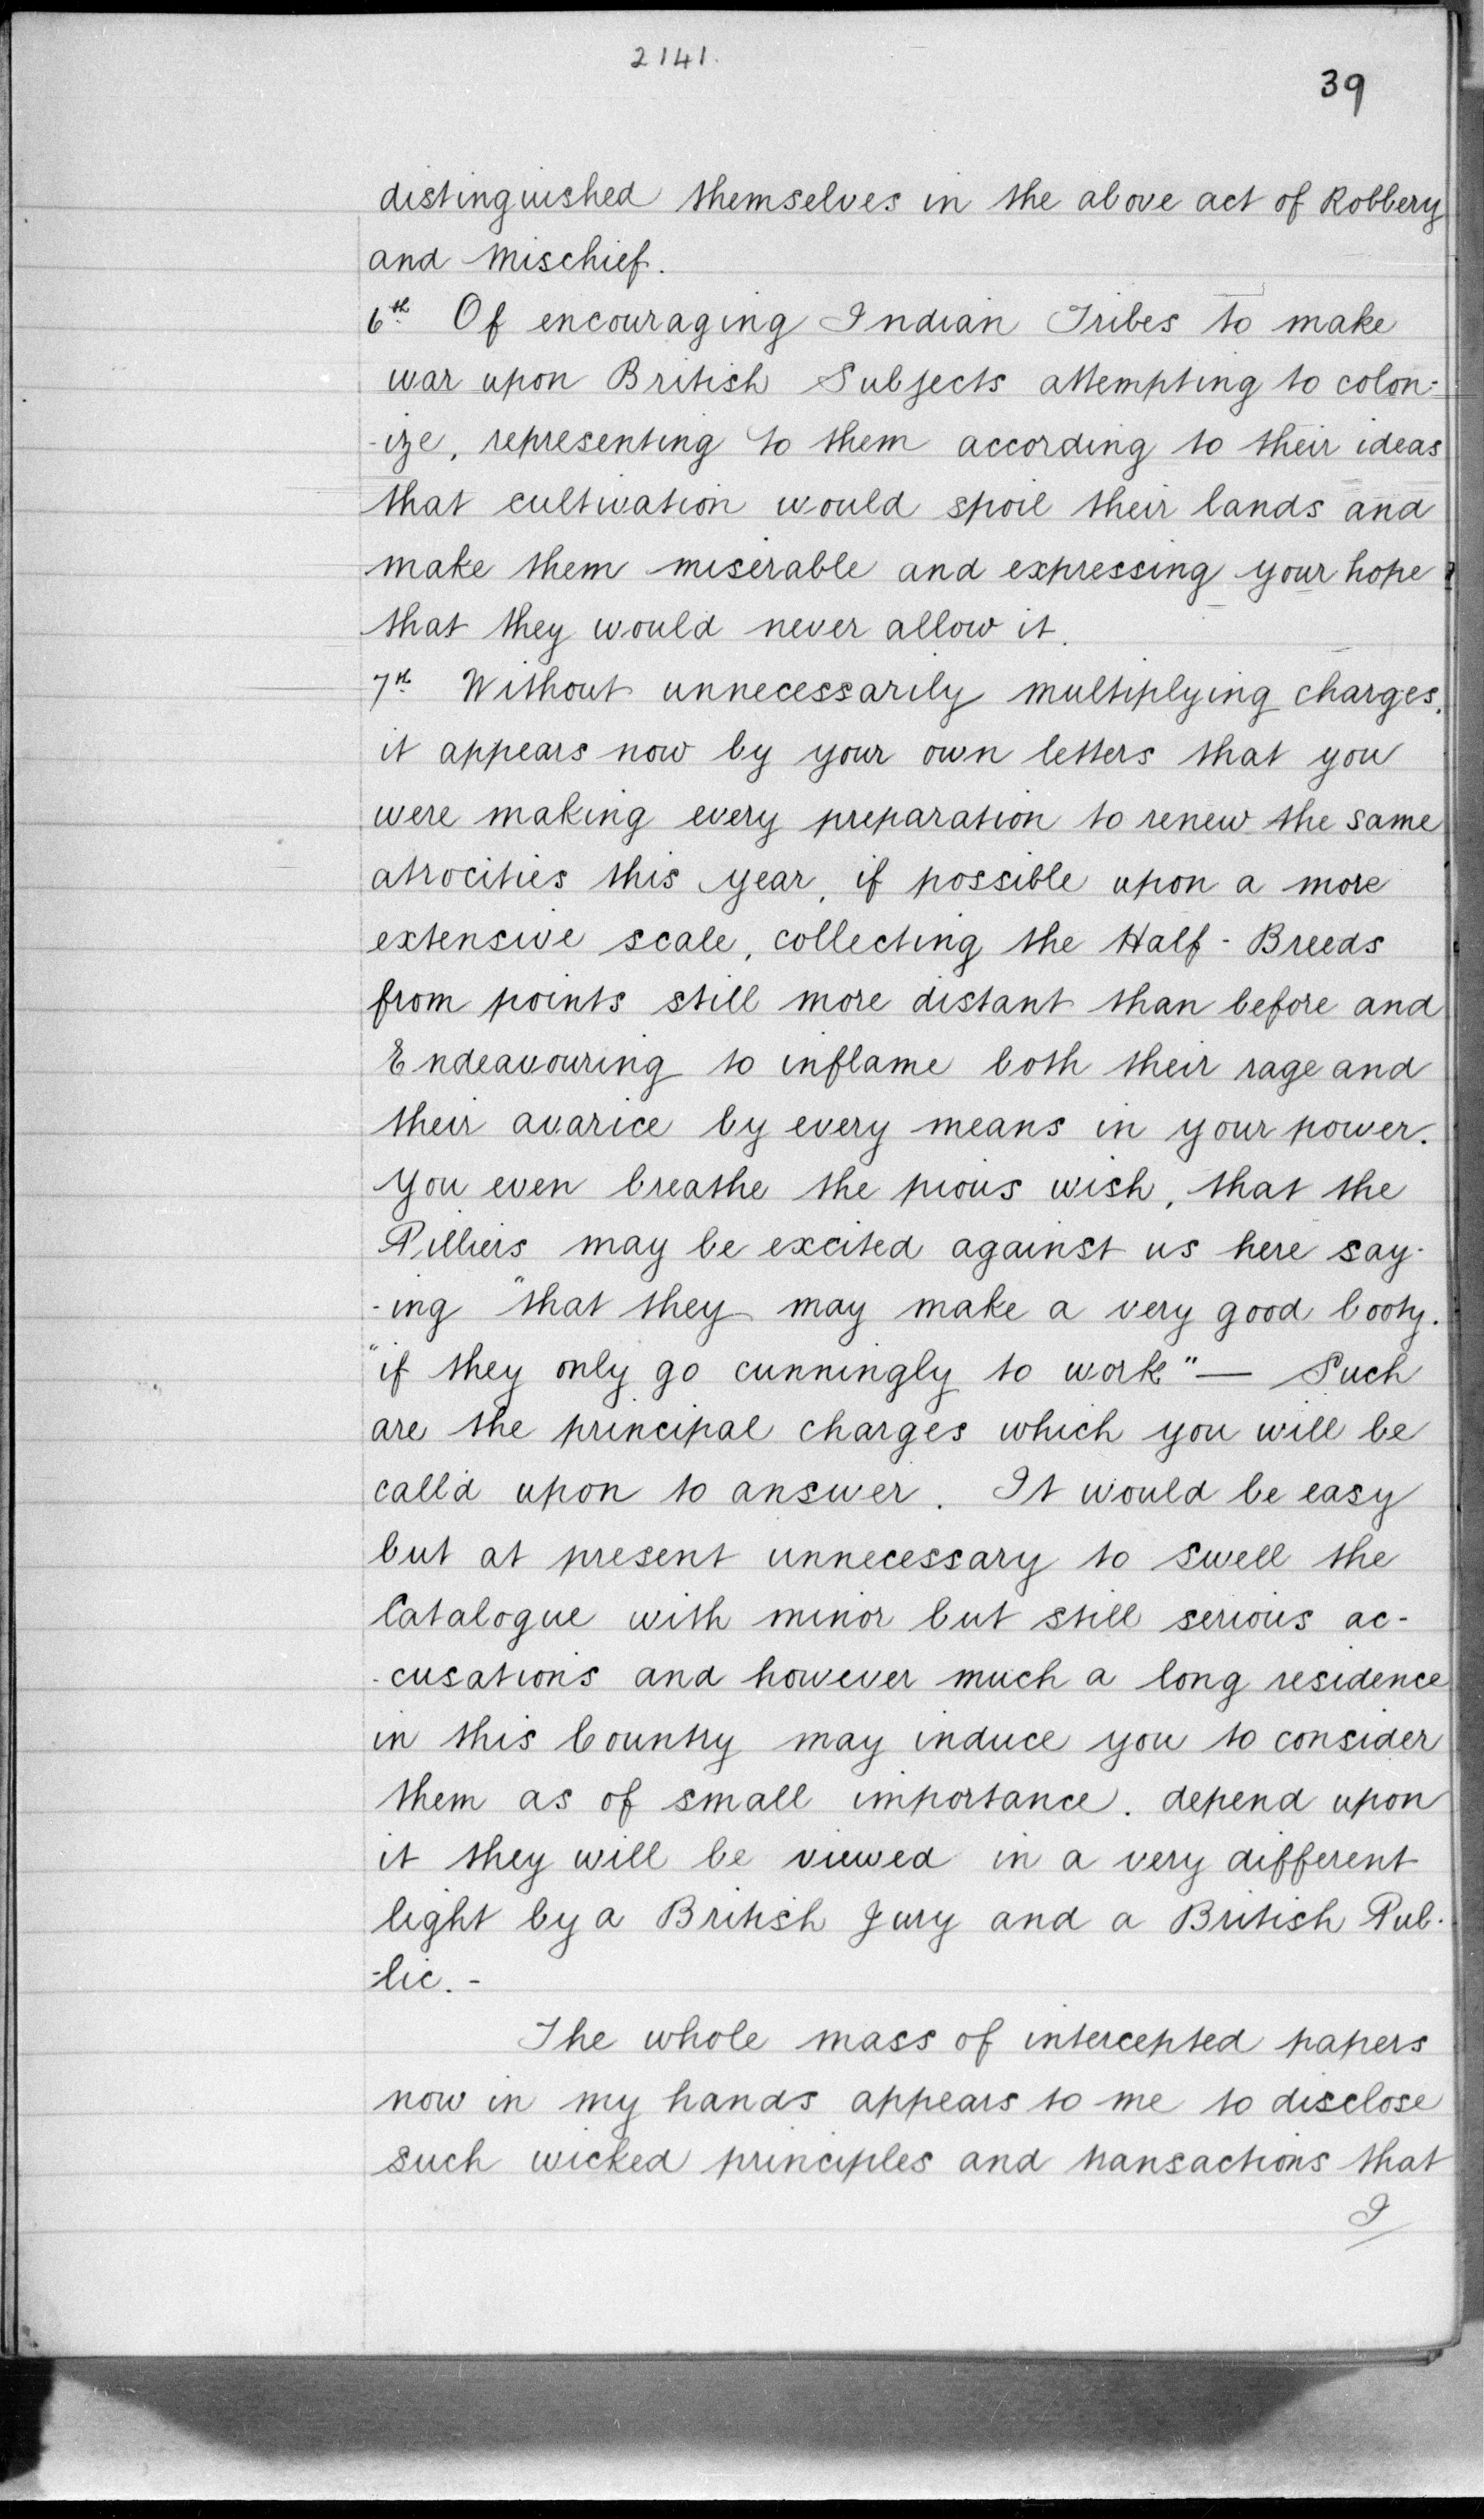 2141.
39
distinguished themselves in the above act of Robbery
and Mischief.
6th. Of encouraging Indian Tribes to make
war upon British Subjects attempting to colon-
-ize, representing to them according to their ideas
that cultivation would spoil their lands and
make them miserable and expressing your hope
that they would never allow it.
7th. Without unnecessarily multiplying charges,
it appears now by your own letters that you
were making every preparation to renew the same
atrocities this year, if possible upon a more
extensive scale, collecting the Half-Breeds
from points still more distant than before and
Endeavouring to inflame both their rage and
their avarice by every means in your power.
You even breathe the pious wish, that the
Pilliers may be excited against us here say-
-ing "that they may make a very good booty.
"if they only go cunningly to work" — Such
are the principal charges which you will be
call'd upon to answer. It would be easy
but at present unnecessary to swell the
Catalogue with minor but still serious ac-
-cusations and however much a long residence
in this Country may induce you to consider
them as of small importance. depend upon
it they will be viewed in a very different
light by a British Jury and a British Pub-
-lic. -
The whole mass of intercepted papers
now in my hands appears to me to disclose
such wicked principles and transactions that
I